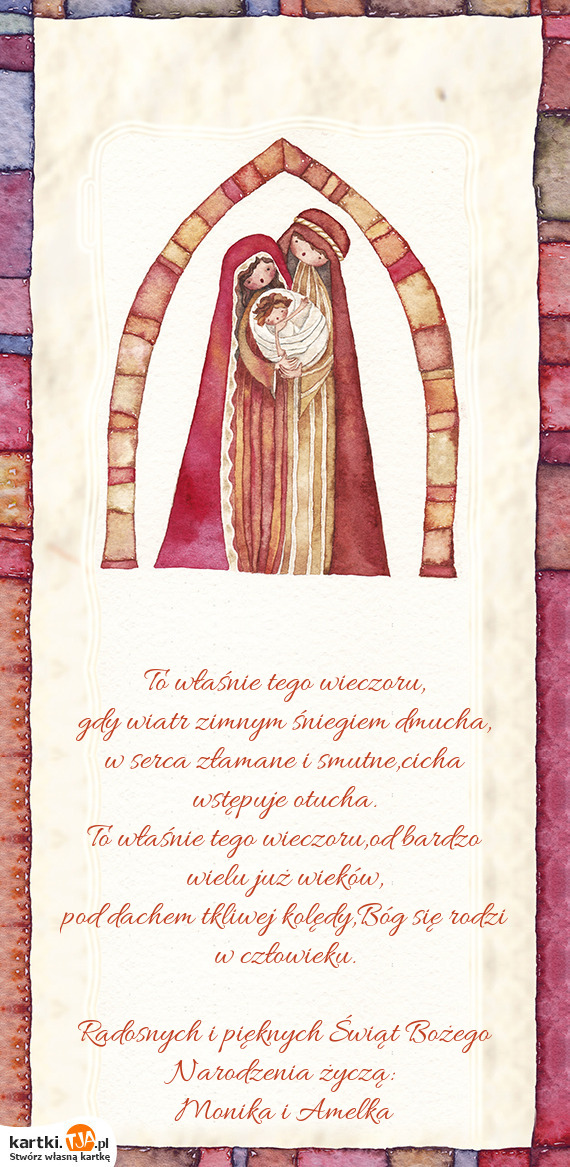 To właśnie tego wieczoru,
gdy wiatr zimnym śniegiem dmucha,
w serca złamane i smutne,cicha
wstępuje otucha.
To właśnie tego wieczoru,od bardzo
wielu już wieków,
pod dachem tkliwej kolędy,Bóg się rodzi
w człowieku.
Radosnych i pięknych Świąt Bożego
Narodzenia życzą:
Monika i Amelka
kartki.TJA.pl
Stwórz własną kartkę